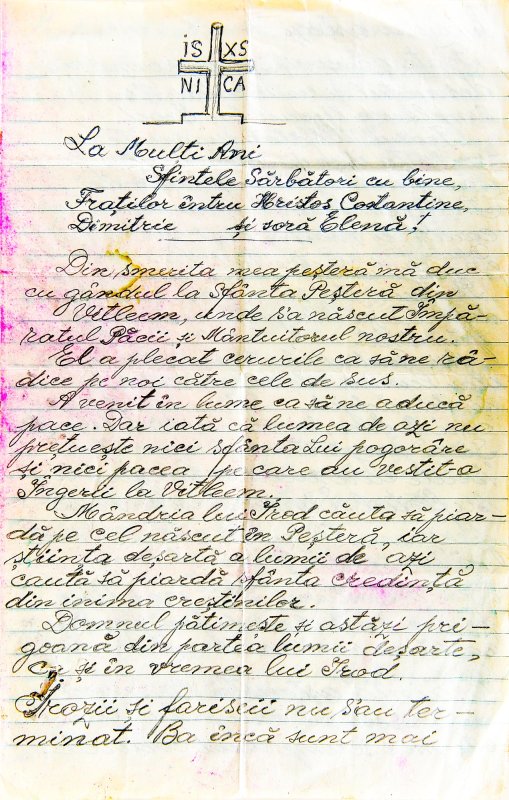 IS XS
NI CA
La Mulți Ani
Sfintele Sărbători cu bine,
Fraților întru Hristos Costantine,
Dimitrie și soră Elenă!
Din smerita mea peșteră mă duc
cu gândul la Sfânta Peșteră din
Vitleem, unde s'a născut Împă-
ratul Păcii și Mântuitorul nostru.
El a plecat cerurile ca să ne râ-
dice pe noi către cele de sus.
A venit în lume ca să ne aducă
pace. Dar iată că lumea de azi nu
prețuește nici sfânta Lui pogorâre
și nici pacea pe care au vestit-o
Îngerii la Vitleem.
Mândria lui Irod căuta să piar-
dă pe cel născut în Peșteră, iar
știința deșartă a lumii de azi
caută să piardă sfânta credință
din inima creștinilor.
Domnul pătimește și astăzi pri-
goană din partea lumii deșarte,
ca și în vremea lui Irod.
Irozii și fariseii nu s'au ter-
minat. Ba încă sunt mai